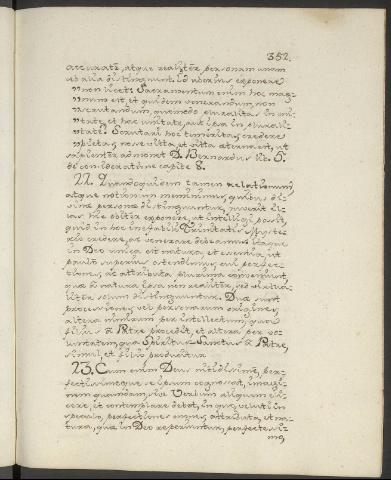 352.
accuratè, atque realitèr personam unam
ab alia distinguunt. Id uberius exponere
"non licet: Sacramentum enim hoc mag-
"num est, et quidem venerandum, non
"scrutandum, quomodo pluralitas in uni-
"tate, et hac unitate, aut ipsa in plurali-
"tate? Scrutari hoc temeritas, credere
"pietas, nosse vita, et vita aeterna est, ut
sapientèr admonet D. Bernardus lib. 5.
de consideratione capite 8.
22. Quandoquidem tamen relationum,
atque notionum meminimus, quibus di-
vinae personae distinguuntur, juverit il-
las hic obitèr exponere, ut intelligi possit,
quid in hoc ineffabili Trinitatis Myste-
rio credere, ac venerare debeamus. Itaque
in Deo unica est natura, et essentia, ut
paulo superius ostendimus, cui perfec-
tiones, ac attributa plurima conveniunt,
quae à natura ipsa non realitèr, sed virtua-
litèr solum distinguuntur. Duae sunt
processiones, vel personarum origines,
altera nimirum per intellectum, qua
filius à Patre procedit, et altera per vo-
luntatem, qua Spiritus Sanctus à Patre,
simul, et filio producitur.
23. Cum enim Deus nitidissimè, per-
fectissimeque se ipsum cognoscat, imagi-
nem quamdam, sive Verbum aliquem di-
cere, et contemplare debet, in quo, velut in
speculo, perfectiones omnes, attributa, et na-
tura, quae in Deo reperiuntur, perfectissi-
mè,